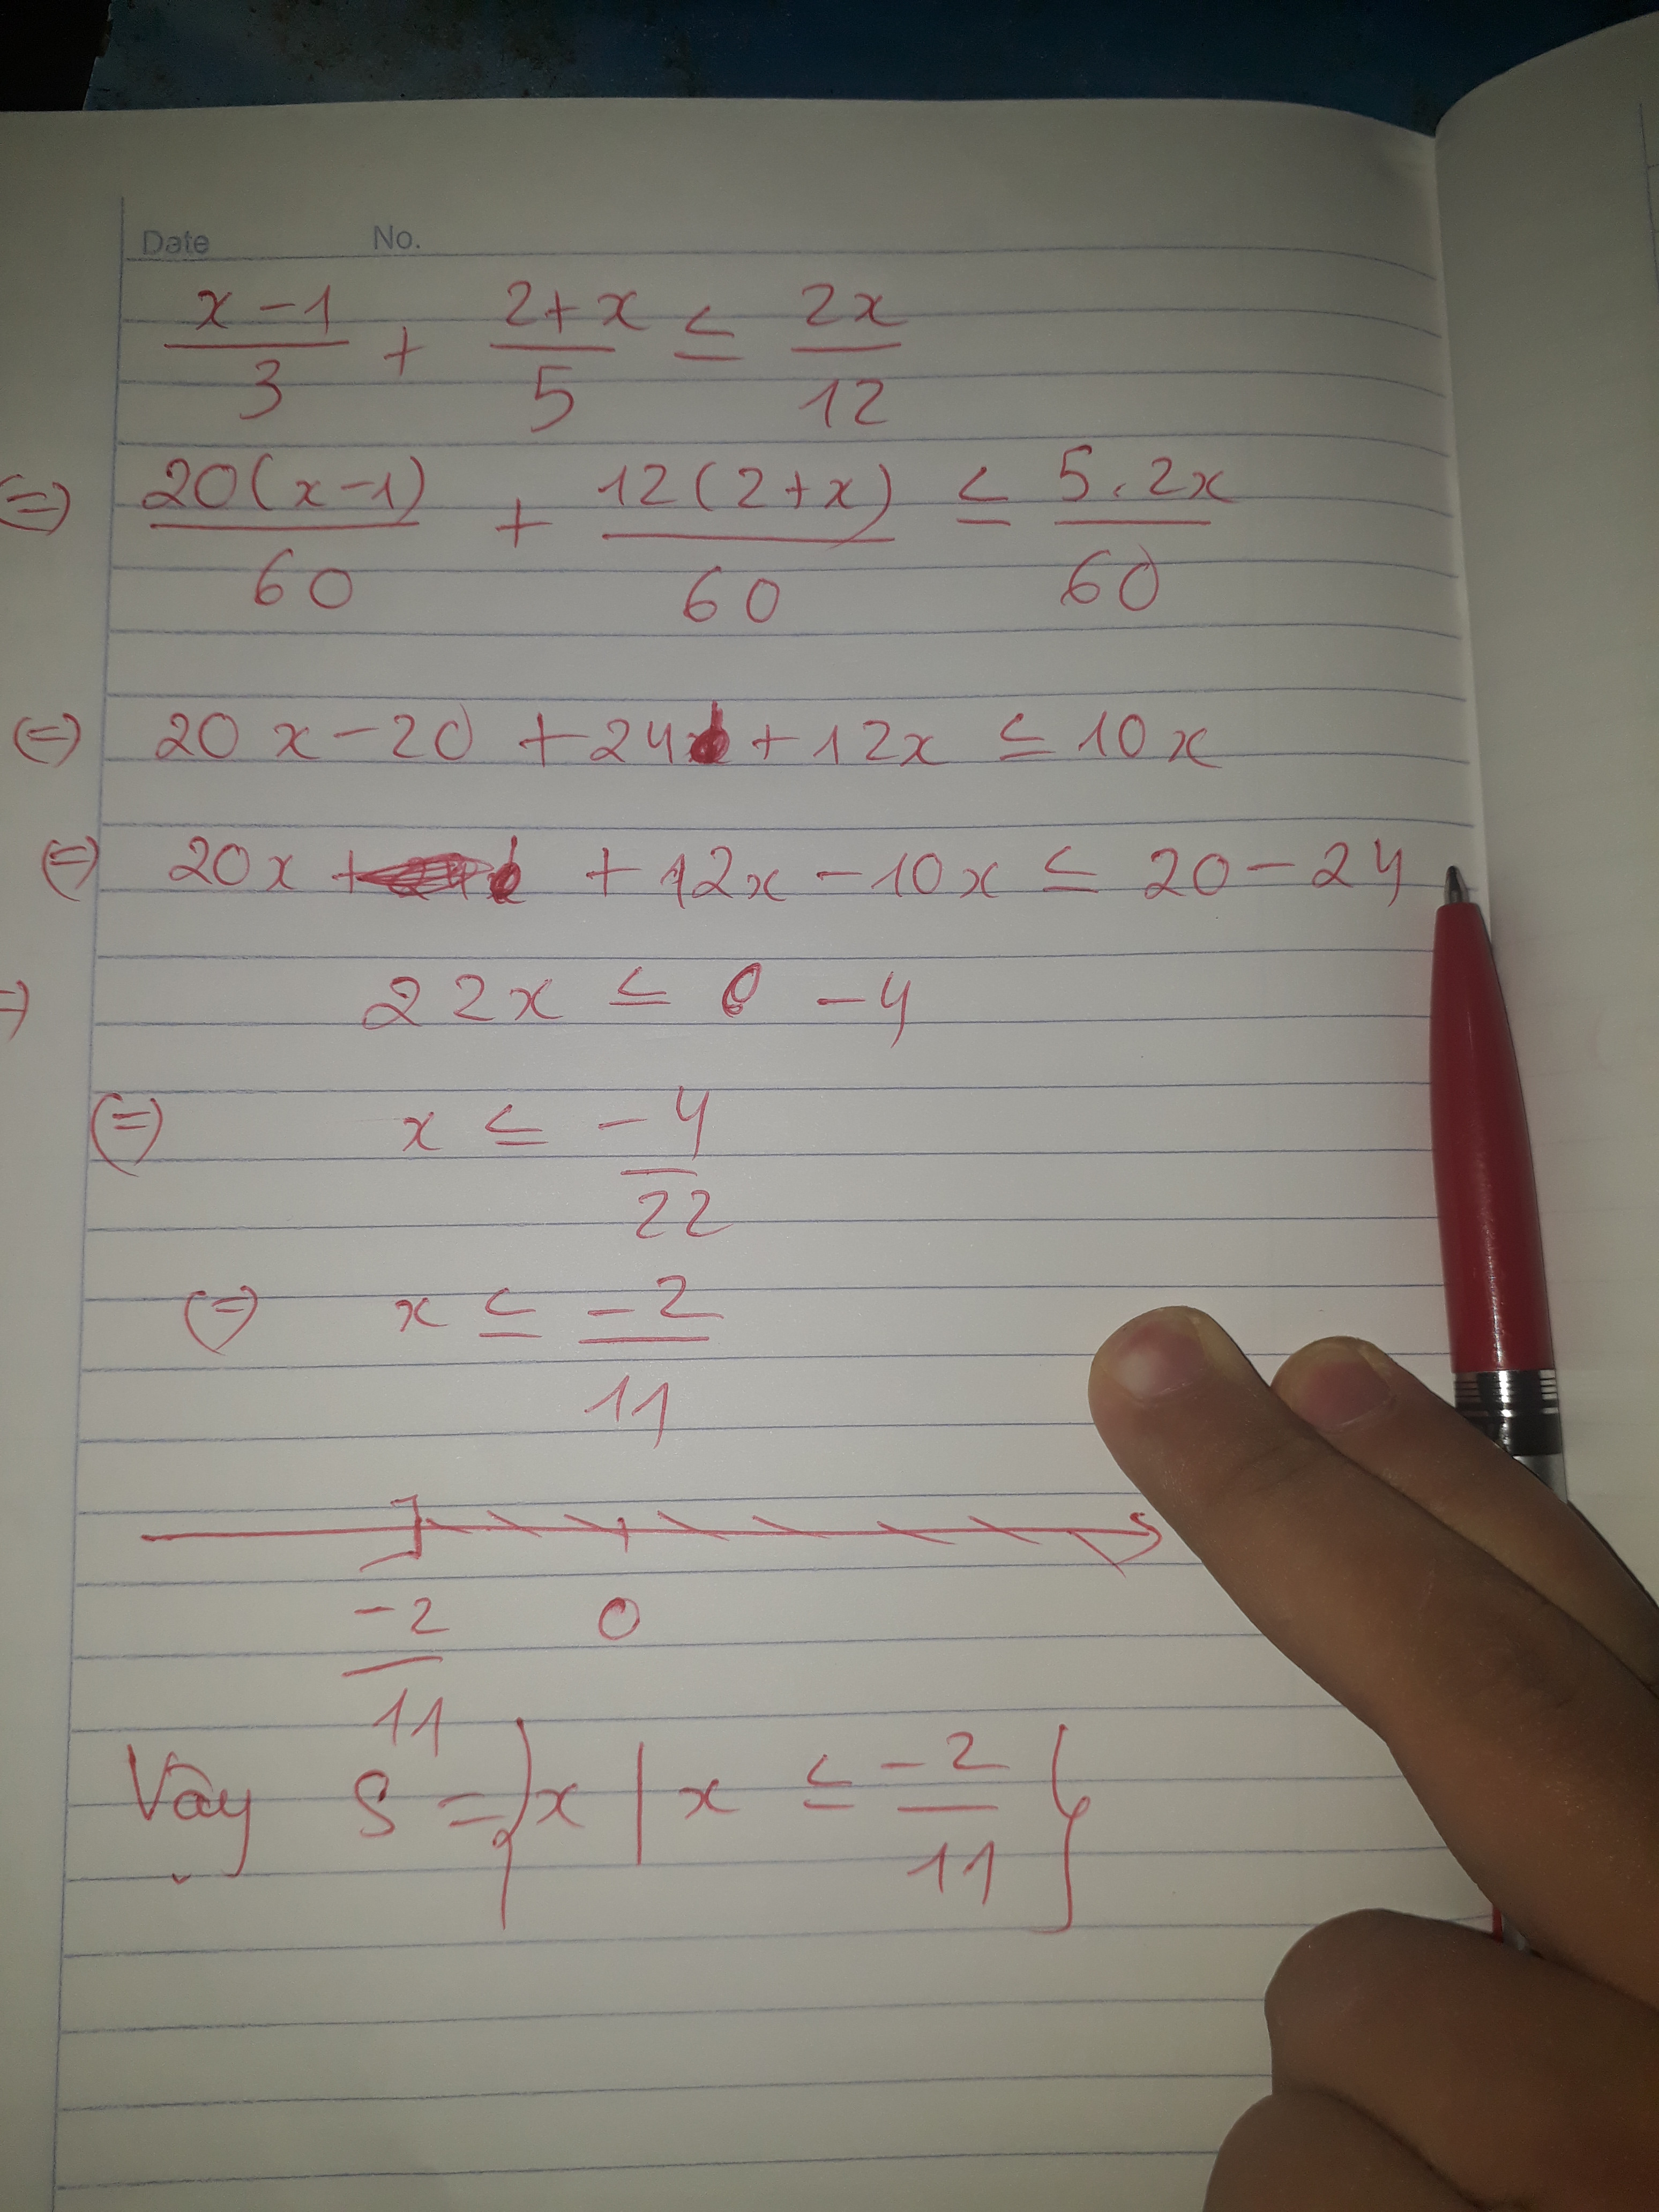 Date No.
x - 1 / 3 + 2 + x / 5 ≤ 2x / 12
(=) 20(x-1) / 60 + 12(2+x) / 60 ≤ 5.2x / 60
(=) 20x - 20 + 24 + 12x ≤ 10x
(=) 20x + 12x - 10x ≤ 20 - 24
=) 22x ≤ -4
(=) x ≤ -4 / 22
(=) x ≤ -2 / 11
-2 / 11 0
Vậy S = {x | x ≤ -2 / 11}